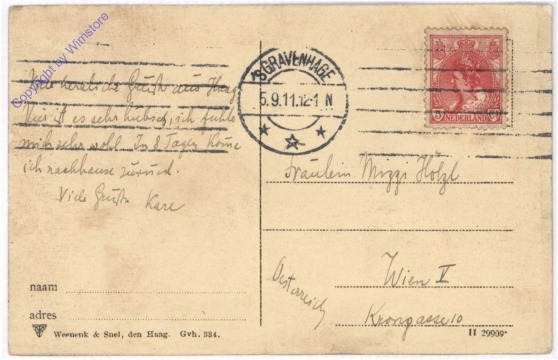 Copyright by Wimstore
'SGRAVENHAGE
5.9.11.12-1 N
NEDERLAND
Viele herzliche Grüße aus Haag
Hier ist es sehr hübsch, ich fühle
mich sehr wohl. In 8 Tagen komme
ich nachhause zurück.
Viele Grüße
Fräulein Mizzi Hölzl
Wien V
Krongasse 10
Oesterreich
naam
adres
Weenenk & Snel, den Haag. Gvh. 334.
II 29909*